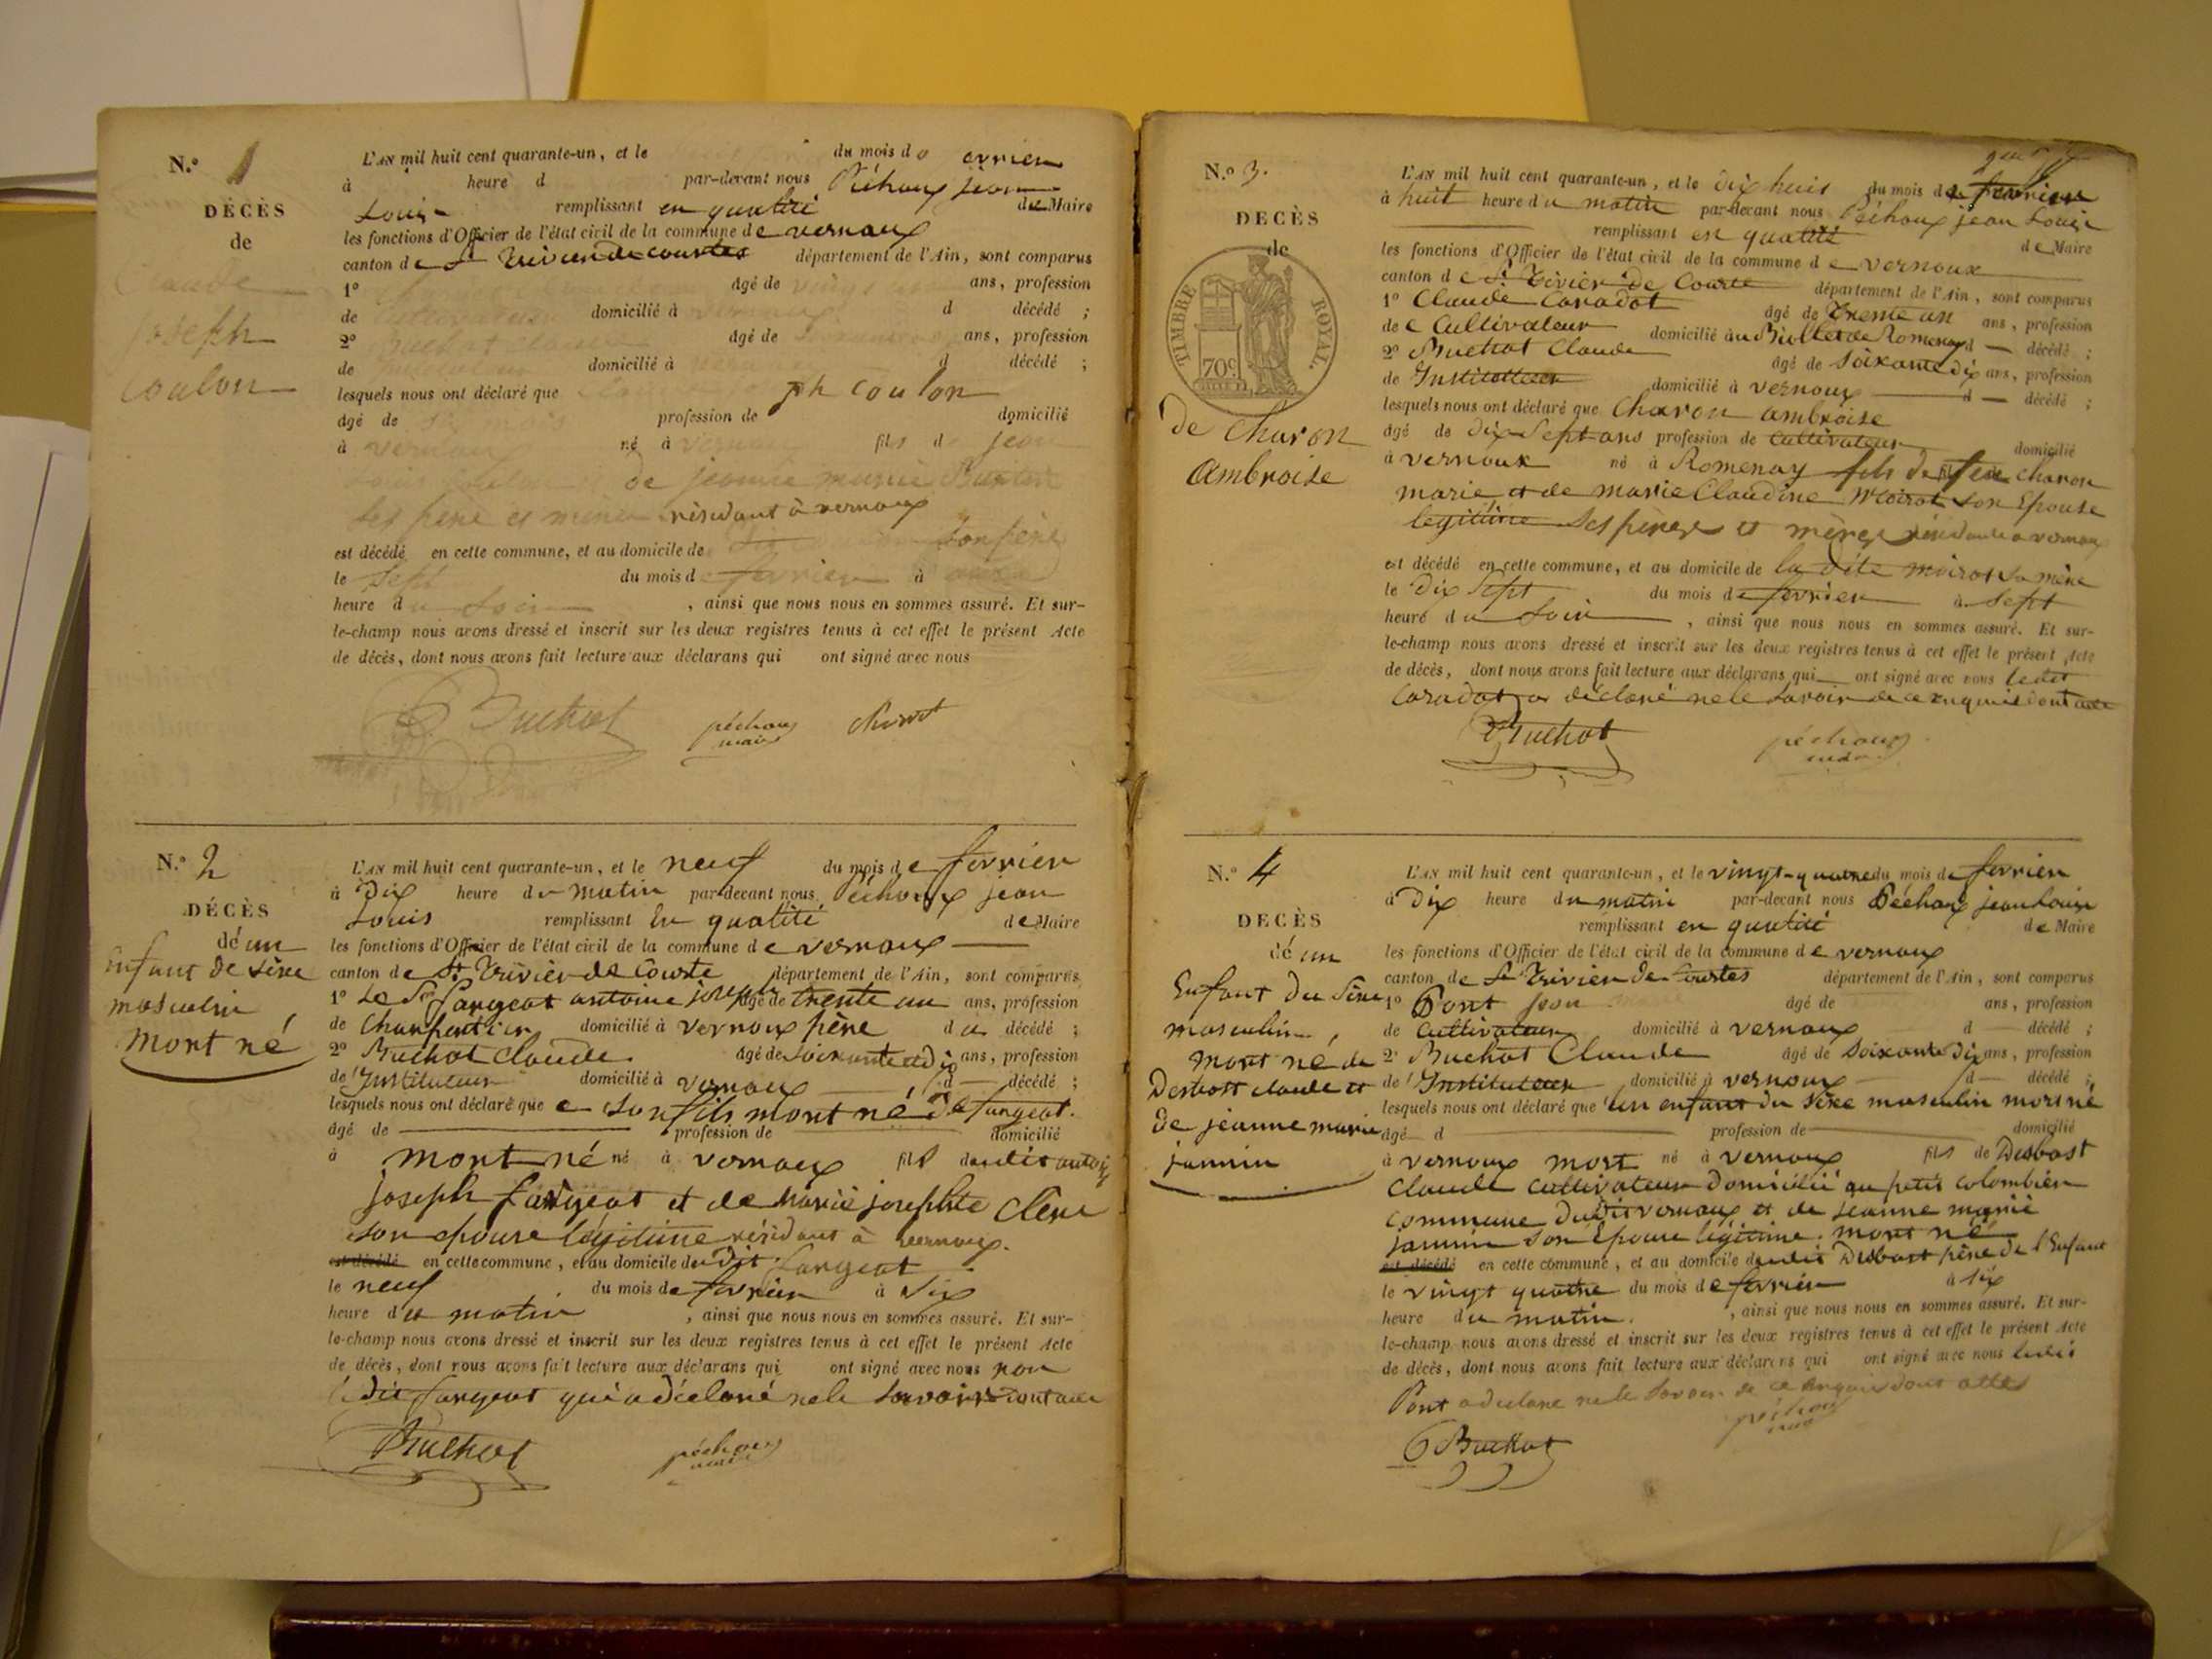 N.o 1
DÉCÈS
de
Claude
joseph
Coulon
L'AN mil huit cent quarante-un, et le du mois d
à heure d par-devant nous Péchoux jean
Louis remplissant en qualité de Maire
les fonctions d'Officier de l'état civil de la commune de vernoux
canton de St Trivier de courtes département de l'Ain, sont comparus
1o âgé de vingt ans, profession
de domicilié à vernoux d décédé ;
2o Buchot Claude âgé de ans, profession
de domicilié à d décédé ;
lesquels nous ont déclaré que ph Coulon
âgé de six mois profession de domicilié
à vernoux né à vernoux fils de jean
de jeanne marie
ses père et mère résidant à vernoux
est décédé en cette commune, et au domicile de son père
le sept du mois de fevrier à
heure du soir , ainsi que nous nous en sommes assuré. Et sur-
le-champ nous avons dressé et inscrit sur les deux registres tenus à cet effet le présent Acte
de décès, dont nous avons fait lecture aux déclarans qui ont signé avec nous
Buchot péchoux
maire
N.o 2
DÉCÈS
de un
Enfant de sèxe
masculin
mort né
L'AN mil huit cent quarante-un, et le neuf du mois de fevrier
à Dix heure du matin par-devant nous Péchoux jean
Louis remplissant En qualité de Maire
les fonctions d'Officier de l'état civil de la commune de vernoux
canton de St Trivier de Courte département de l'Ain, sont comparus
1o Le Sr fargeot antoine joseph âgé de trente un ans, profession
de Charpentier domicilié à vernoux père du décédé ;
2o Buchot Claude âgé de soixante et dix ans, profession
de Instituteur domicilié à vernoux d décédé ;
lesquels nous ont déclaré que son fils mort né de fargeot.
âgé de profession de domicilié
à mort né né à vernoux fils dudit antoine
joseph fargeot et de marie josephte Clere
son epouse légitime résidant à vernoux.
est décédé en cette commune, et au domicile dudit fargeot
le neuf du mois de fevrier à six
heure du matin , ainsi que nous nous en sommes assuré. Et sur-
le-champ nous avons dressé et inscrit sur les deux registres tenus à cet effet le présent Acte
de décès, dont nous avons fait lecture aux déclarans qui ont signé avec nous non
ledit fargeot qui a déclaré ne le savoir dont acte
Buchot péchoux
maire
N.o 3.
DECÈS
de
TIMBRE ROYAL.
70c
de Charon
Ambroise
L'AN mil huit cent quarante-un, et le dix huit du mois de fevrier
à huit heure du matin par-devant nous Péchoux jean Louis
remplissant en qualité de Maire
les fonctions d'Officier de l'état civil de la commune de vernoux
canton de St Trivier de Courte département de l'Ain, sont comparus
1o Claude Caradot âgé de Trente un ans, profession
de Cultivateur domicilié au de Romenay d décédé ;
2o Buchot Claude âgé de soixante dix ans, profession
de Instituteur domicilié à vernoux d décédé ;
lesquels nous ont déclaré que Charon ambroise
âgé de dix sept ans profession de cultivateur domicilié
à vernoux né à Romenay fils de feu charon
marie et de marie Claudine Moirot son Epouse
legitime ses père et mère résidants à vernoux
est décédé en cette commune, et au domicile de la dite moirot sa mère
le Dix sept du mois de fevrier à sept
heure du soir , ainsi que nous nous en sommes assuré. Et sur-
le-champ nous avons dressé et inscrit sur les deux registres tenus à cet effet le présent Acte
de décès, dont nous avons fait lecture aux déclarans qui ont signé avec nous ledit
Caradot a déclaré ne le savoir de ce enquis dont acte
Buchot péchoux
maire
N.o 4
DECÈS
de un
Enfant du sèxe
masculin,
mort né de
Desbost claude et
de jeanne marie
jannin
L'AN mil huit cent quarante-un, et le vingt-quatre du mois de fevrier
à Dix heure du matin par-devant nous Péchoux jean Louis
remplissant en qualité de Maire
les fonctions d'Officier de l'état civil de la commune de vernoux
canton de St Trivier de Courtes département de l'Ain, sont comparus
1o Pont jean âgé de ans, profession
de cultivateur domicilié à vernoux d décédé ;
2o Buchot Claude âgé de soixante dix ans, profession
de Instituteur domicilié à vernoux d décédé ;
lesquels nous ont déclaré que un enfant du sèxe masculin mort né
âgé d profession de domicilié
à vernoux mort né à vernoux fils de Desbost
Claude cultivateur domicilié au petit colombier
commune dudit vernoux et de jeanne marie
jannin son épouse légitime. mort né
est décédé en cette commune, et au domicile dudit Desbost père de l'Enfant
le vingt quatre du mois de fevrier à six
heure du matin. , ainsi que nous nous en sommes assuré. Et sur-
le-champ nous avons dressé et inscrit sur les deux registres tenus à cet effet le présent Acte
de décès, dont nous avons fait lecture aux déclarans qui ont signé avec nous ledit
Pont a déclaré ne le savoir de ce enquis dont acte
péchoux
maire
Buchot